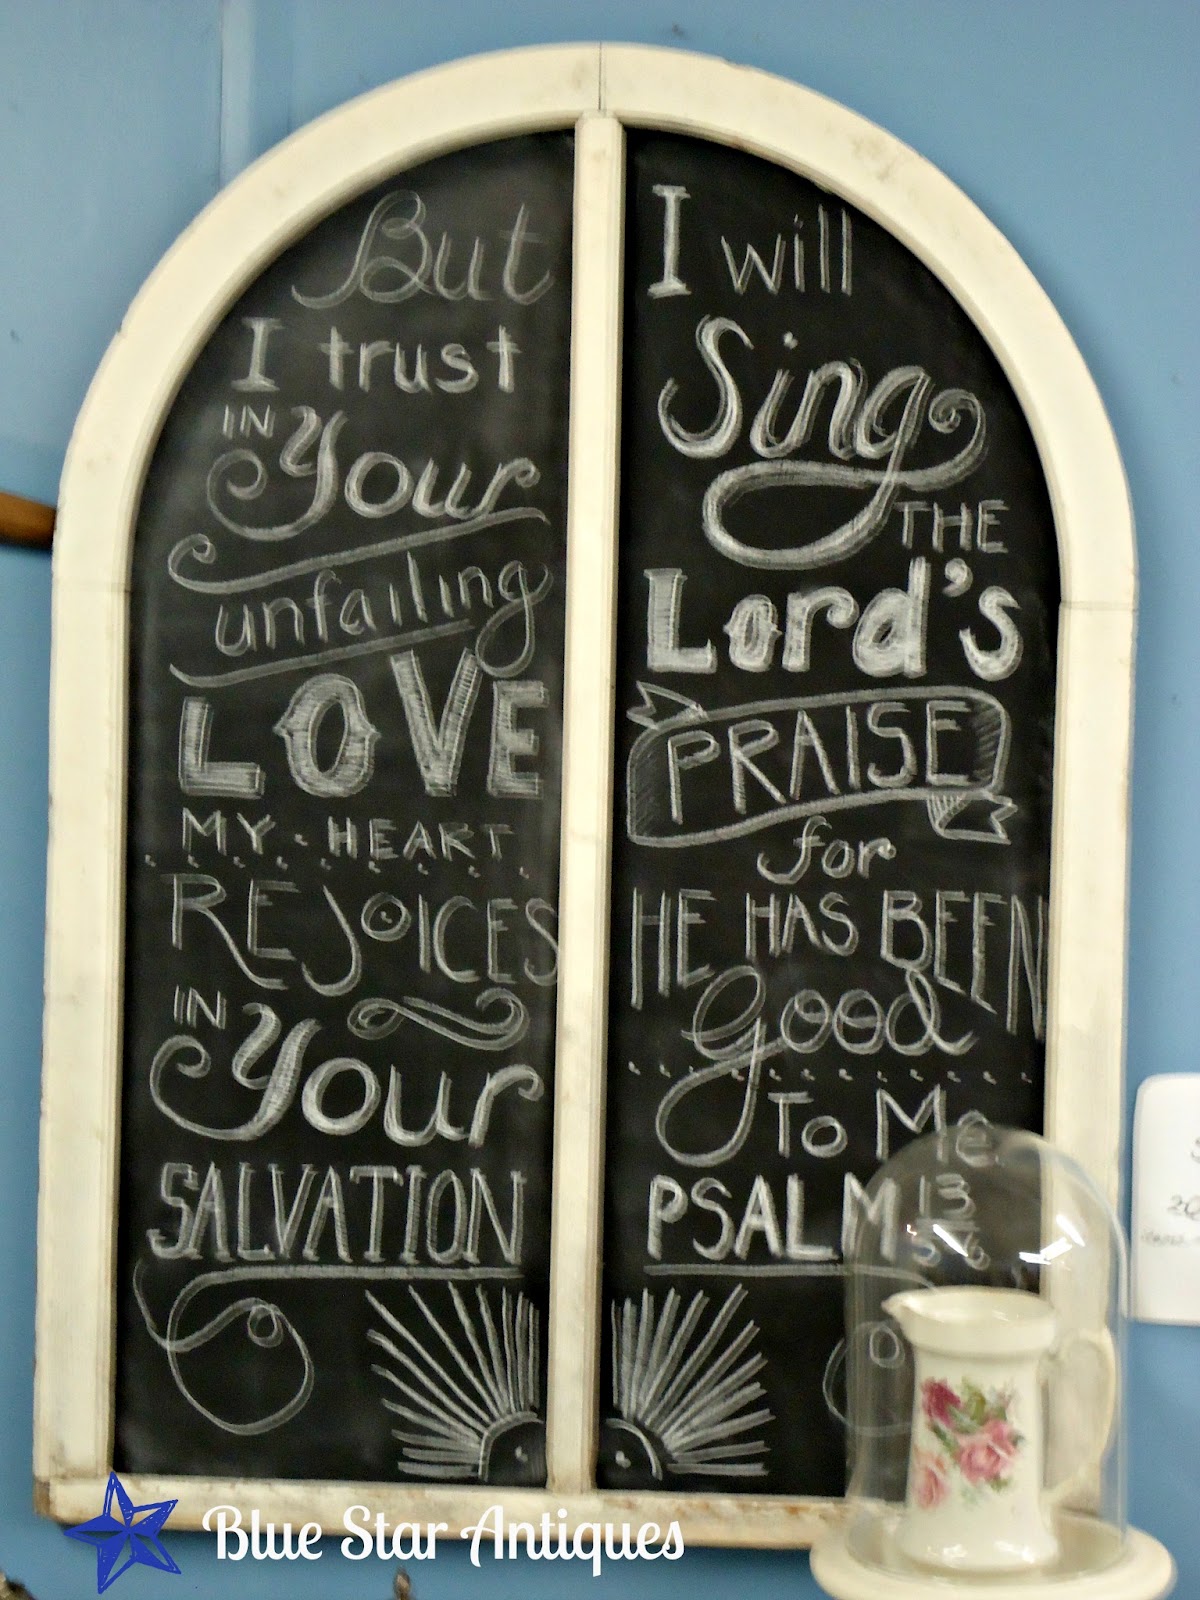 But
I trust
IN
Your
unfailing
LOVE
MY HEART
REJOICES
IN
Your
SALVATION
I will
Sing
THE
Lord's
PRAISE
for
HE HAS BEEN
Good
To Me
PSALM 13
5-6
Blue Star Antiques